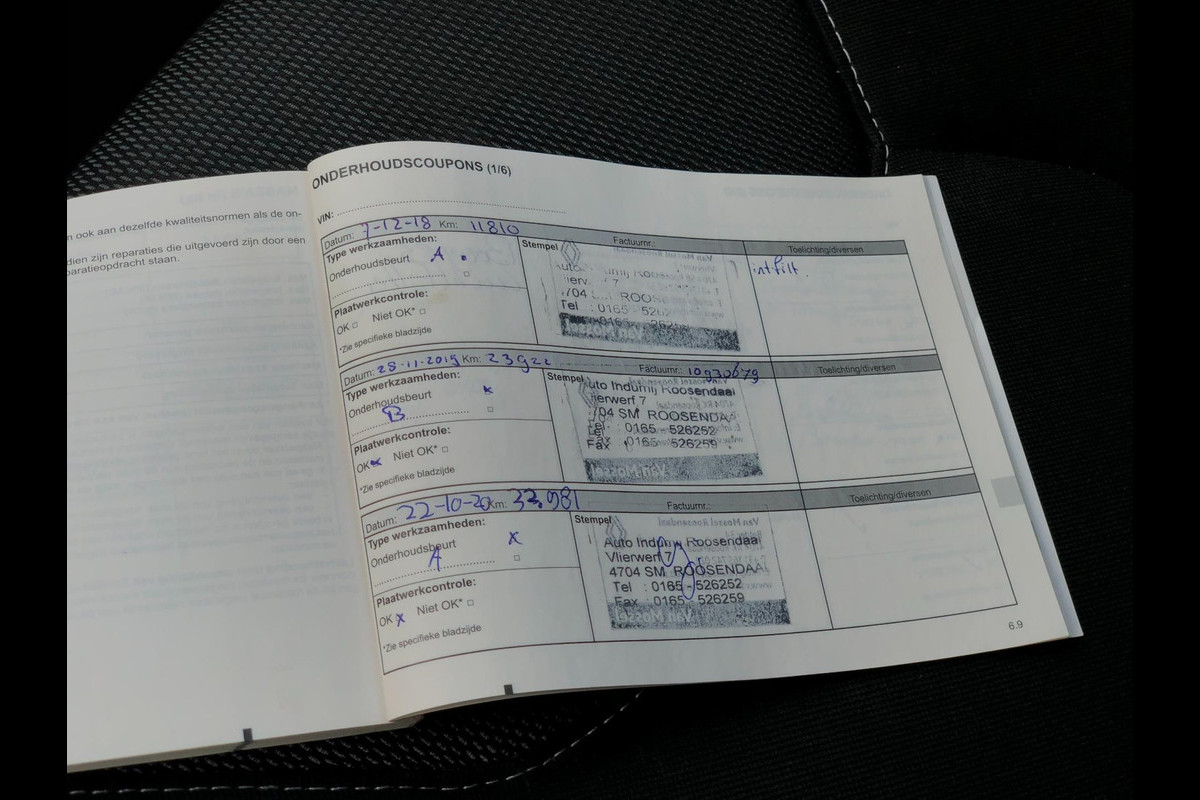 n ook aan dezelfde kwaliteitsnormen als de on-
dien zijn reparaties die uitgevoerd zijn door een
paratieopdracht staan.
ONDERHOUDSCOUPONS (1/6)
VIN:
Datum: 7-12-18 Km: 11810 Factuurnr.: Toelichting/diversen
Type werkzaamheden: Stempel
Onderhoudsbeurt A
int filt.
Plaatwerkcontrole:
OK □ Niet OK* □
*Zie specifieke bladzijde
4704 ROOSEN
Tel : 0165 - 5262
Van Mossel
Datum: 28-11-2019 Km: 23922 Factuurnr.: 10930679 Toelichting/diversen
Type werkzaamheden: Stempel
Onderhoudsbeurt x
B □
Plaatwerkcontrole:
OK x Niet OK* □
*Zie specifieke bladzijde
Auto Indumij Roosendaal
Vlierwerf 7
4704 SM ROOSENDAA
Tel : 0165 - 526252
Fax : 0165 - 526259
Van Mossel
Datum: 22-10-20 Km: 32.981 Factuurnr.: Toelichting/diversen
Type werkzaamheden: Stempel
Onderhoudsbeurt x
A □
Plaatwerkcontrole:
OK x Niet OK* □
*Zie specifieke bladzijde
Van Mossel Roosendaal
Auto Indumij Roosendaal
Vlierwerf 7
4704 SM ROOSENDAAL
Tel : 0165 - 526252
Fax : 0165 - 526259
Van Mossel
6.9